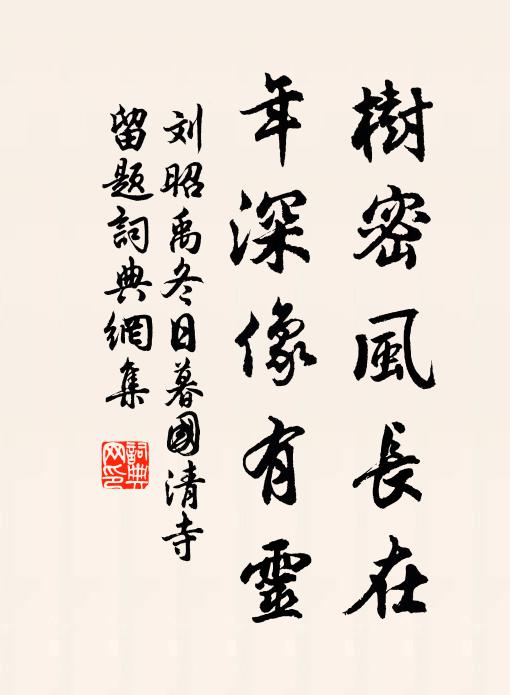 樹密風長在
年深像有靈
刘昭禹冬日暮國清寺
留题詞典網集
詞典
网印